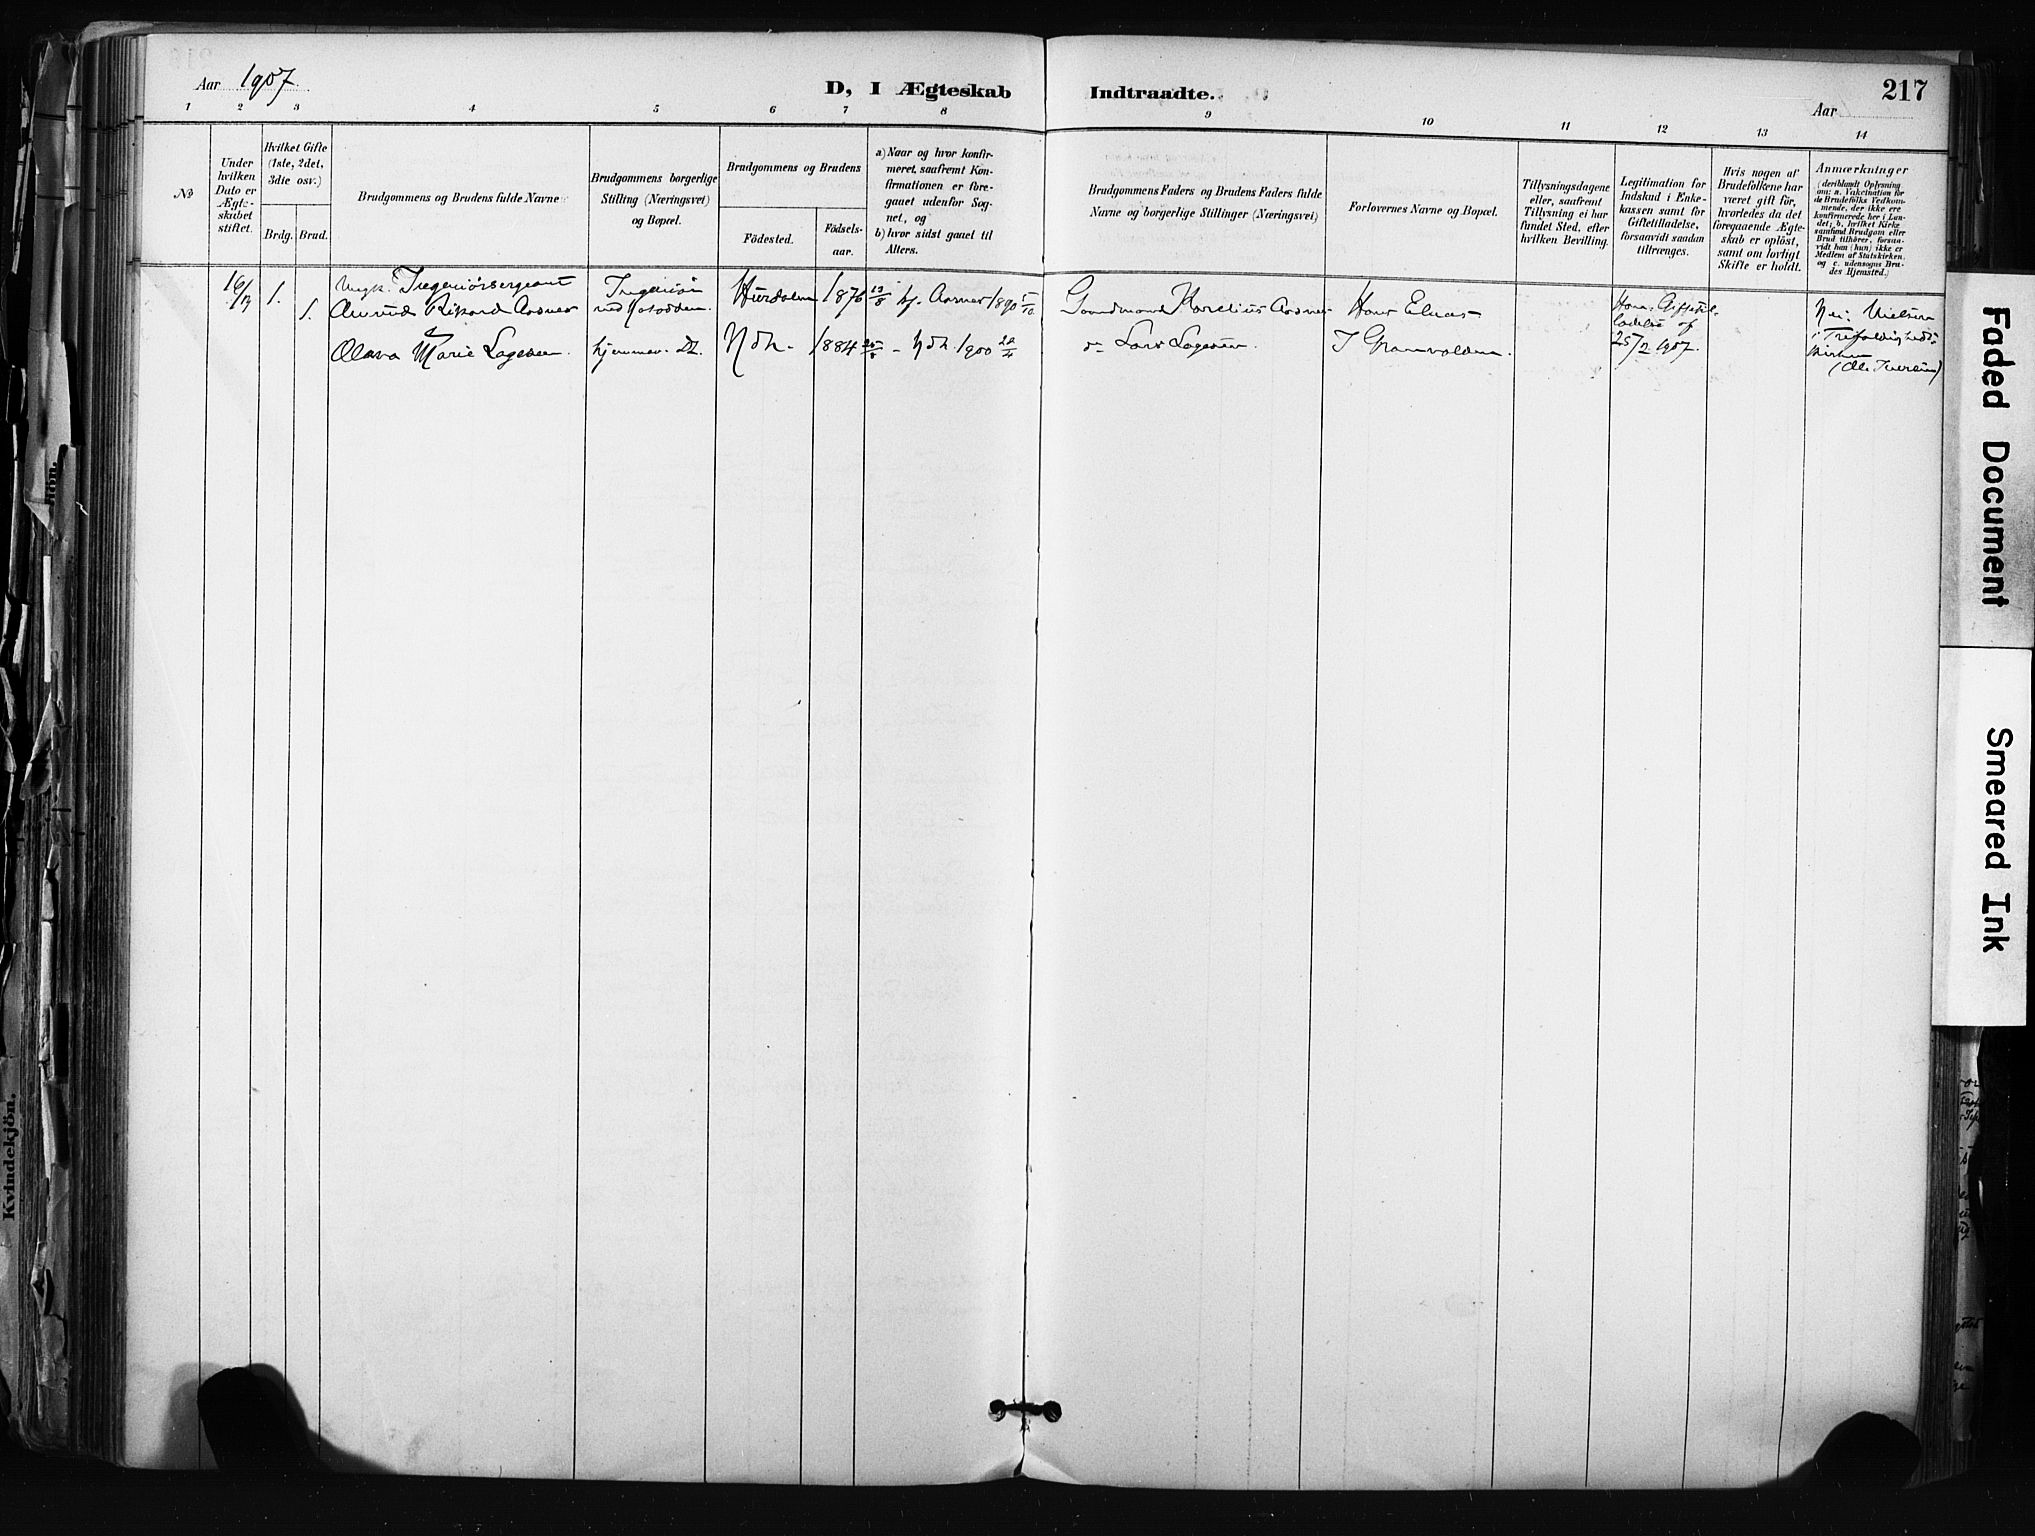 Aar 1907.
D, I Ægteskab Indtraadte.
217
Aar
1 2 3 4 5 6 7 8 9 10 11 12 13 14
No
Under
hvilken
Dato er
Ægte-
skabet
stiftet.
Hvilket Gifte
(1ste, 2det,
3die osv.)
Brdg. Brud.
Brudgommens og Brudens fulde Navne
Brudgommens borgerlige
Stilling (Næringsvei)
og Bopæl.
Brudgommens og Brudens
Födested.
Födsels-
aar.
a) Naar og hvor konfir-
meret, saafremt Kon-
firmationen er fore-
gaaet udenfor Sog-
net, og
b) hvor sidst gaaet til
Alters.
Brudgommens Faders og Brudens Faders fulde
Navne og borgerlige Stillinger (Næringsvei)
Forlovernes Navne og Bopæl.
Tillysningsdagene
eller, saafremt
Tillysning ei har
fundet Sted, efter
hvilken Bevilling.
Legitimation for
Indskud i Enke-
kassen samt for
Giftetilladelse,
forsaavidt saadan
tiltrænges.
Hvis nogen af
Brudefolkene har
været gift för,
hvorledes da det
foregaaende Ægte-
skab er oplöst,
samt om lovligt
Skifte er holdt.
Anmærkninger
(deriblandt Oplysning
om: a. Vakcination for
de Brudefolks Vedkom-
mende, der ikke ere
konfirmerede her i Lan-
det; b. hvilket Kirke
samfund Brudgom eller
Brud tilhörer, forsaa-
vidt han (hun) ikke er
Medlem af Statskirken,
og c. udensogns Bru-
des Hjemsted.)
16/ 1. Ungk. Ingeniörsergeant Ingeniör Hurdalen 1876 13/8 hj. Aasnes 1890 5/10 Gaardmand Aasnes Hans Elnes
1. Amund Rikard Aasnes ved Notodden.
Olava Marie Lagesen. hjemmev. Dt. Ndh. 1884 - Ndh. 1900 Do Lars Lagesen. J Granvolden.
25/2 1907.
Nei. Vielsen
i Trefoldigheds-
kirken
Kvindekjön.
Faded Document
Smeared Ink